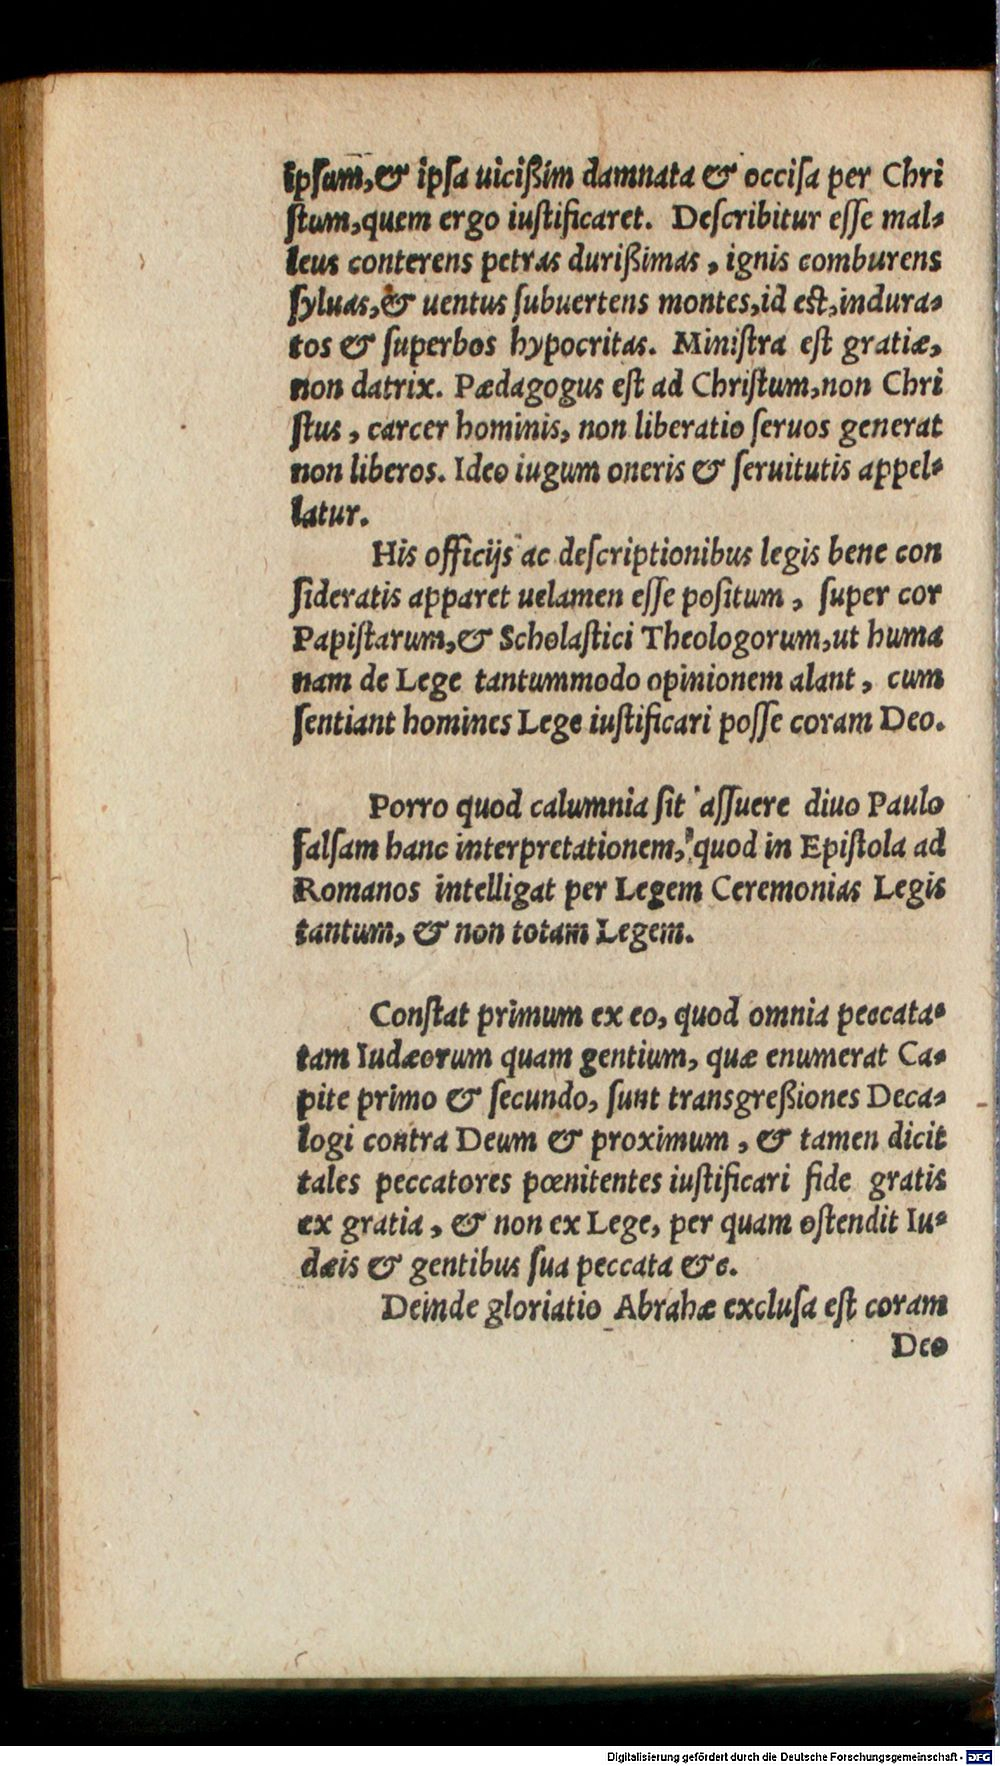 ipsam,& ipsa uicißim damnata & occisa per Chri
stum,quem ergo iustificaret. Describitur esse mal-
leus conterens petras durißimas, ignis comburens
syluas,& uentus subuertens montes,id est,indura-
tos & superbos hypocritas. Ministra est gratiæ,
non datrix. Pædagogus est ad Christum,non Chri
stus, carcer hominis, non liberatio seruos generat
non liberos. Ideo iugum oneris & seruitutis appel-
latur.
His officijs ac descriptionibus legis bene con
sideratis apparet uelamen esse positum, super cor
Papistarum,& Scholastici Theologorum,ut huma
nam de Lege tantummodo opinionem alant, cum
sentiant homines Lege iustificari posse coram Deo.
Porro quod calumnia sit assuere diuo Paulo
falsam hanc interpretationem, quod in Epistola ad
Romanos intelligat per Legem Ceremonias Legis
tantum, & non totam Legem.
Constat primum ex eo, quod omnia peccata-
tam Iudæorum quam gentium, quæ enumerat Ca-
pite primo & secundo, sunt transgreßiones Deca-
logi contra Deum & proximum, & tamen dicit
tales peccatores pœnitentes iustificari fide gratis
ex gratia, & non ex Lege, per quam ostendit Iu-
dæis & gentibus sua peccata &c.
Deinde gloriatio Abrahæ exclusa est coram
Deo
Digitalisierung gefördert durch die Deutsche Forschungsgemeinschaft - DFG